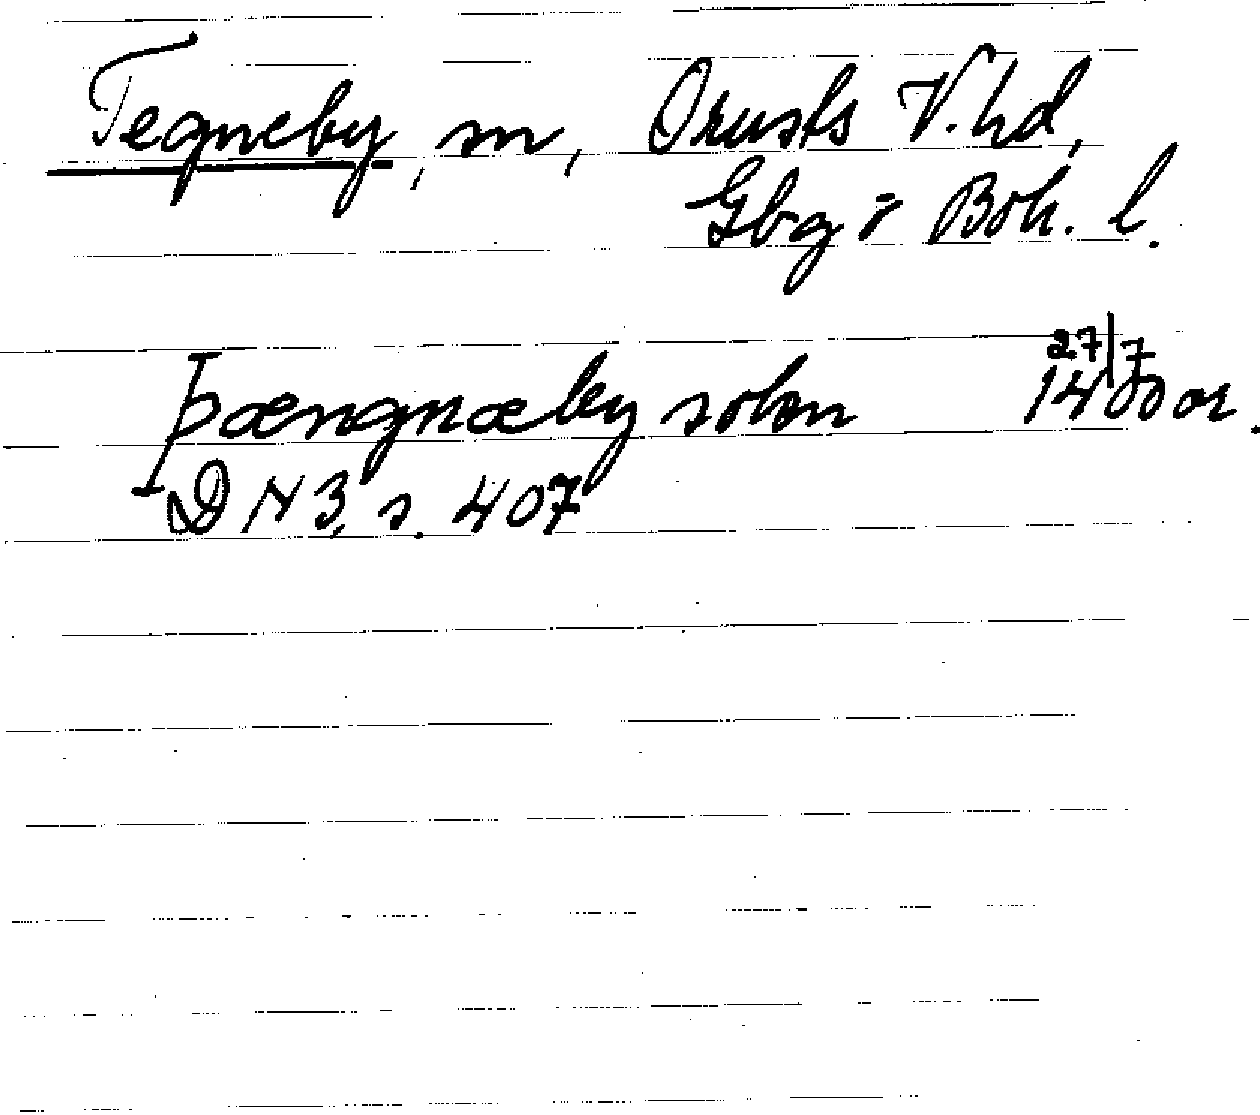 Tegneby, sn, Orusts V. hd,
Gbg o Boh. l.
Þængnæby sokn 27/7 1400 or.
DN 3, s. 407